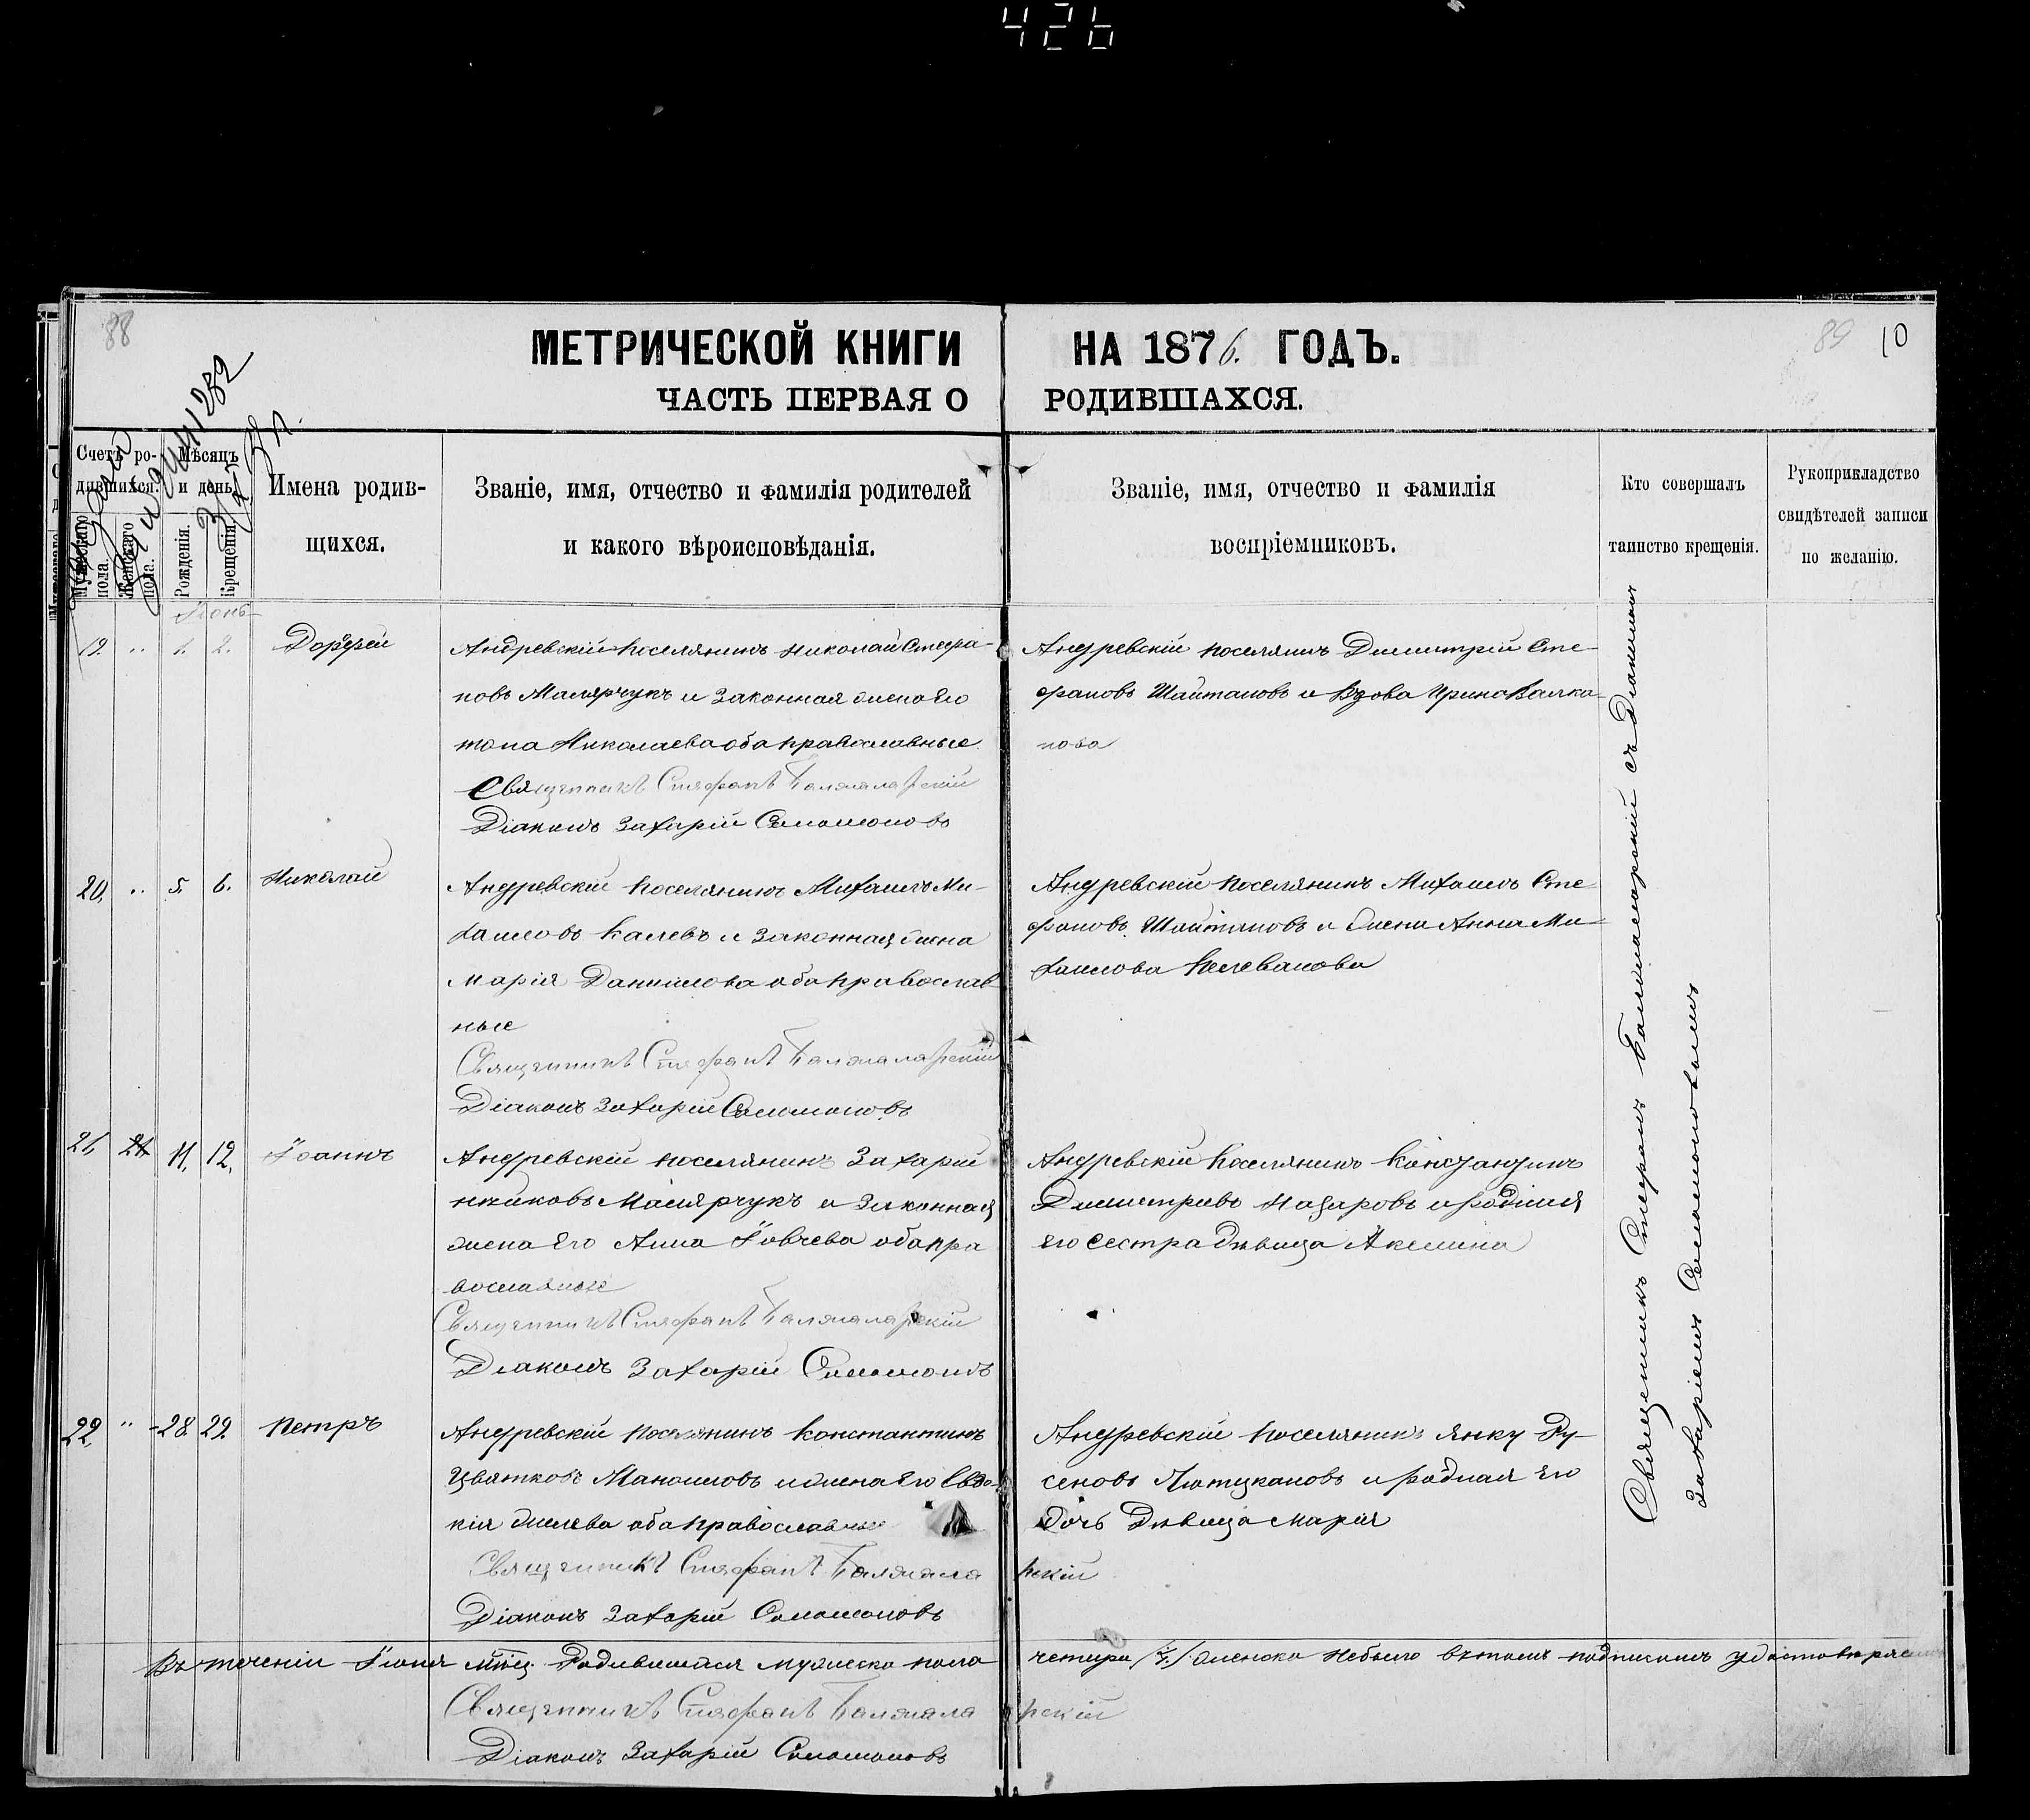 426
88
МЕТРИЧЕСКОЙ КНИГИ НА 1876. ГОДЪ.
89 10
ЧАСТЬ ПЕРВАЯ О РОДИВШАХСЯ.
Счетъ ро-
дившихся.
Мужескаго
пола.
Женскаго
пола.
Мѣсяцъ
и день.
Рожденія.
Крещенія.
Имена родив-
щихся.
Званіе, имя, отчество и фамилія родителей
и какого вѣроисповѣданія.
Званіе, имя, отчество и фамилія
воспріемниковъ.
Кто совершалъ
таинство крещенія.
Рукоприкладство
свидѣтелей записи
по желанію.
19. " 1. 2.
Андревскій поселянинъ Николай Стефа-
новъ Малярчукъ и Законная жена Его
Николаева оба православные
Священникъ Стефанъ Балжаларскій
Діаконъ Захарій Соломоновъ
Андревскій поселянинъ Димитрій Сте-
фановъ Шайтановъ и Вдова Ирина Валка-
нова
20. " 5. 6. Николай
Андревскій поселянинъ Михаилъ Ми-
хаиловъ Калевъ и Законная жена
Марія Данилова оба православ
ные
Священникъ Стефанъ Балжаларскій
Діаконъ Захарій Соломоновъ
Андревскій поселянинъ Михаилъ Сте
фановъ Шайтановъ и жена Анна Ми-
хаилова
21 11. 12. Іоаннъ
Андревскій поселянинъ Захарій
Малярчукъ и Законная
жена Его Анна Іовчева оба пра
вославные
Священникъ Стефанъ Балжаларскій
Діаконъ Захарій Соломоновъ
Андревскій поселянинъ Константинъ
Димитріевъ Назаровъ и родная
его сестра дѣвица Акилина
22. " 28. 29. Петръ
Андревскій поселянинъ Константинъ
Цвятковъ Маноиловъ и жена Его Евдо-
кія Желева оба православные
Священникъ Стефанъ Балжаларскій
Діаконъ Захарій Соломоновъ
Андревскій поселянинъ Янку Ру-
сеновъ и родная Его
Дочь Дѣвица Марія
Священникъ Стефанъ Балжаларскій съ Діакономъ
Захаріемъ Соломоновымъ
Въ теченіи Іюня мѣсц. Родившихся мужеска пола четыре /4/ женска небыло въ томъ подписомъ удостовѣряемъ
Священникъ Стефанъ Балжаларскій
Діаконъ Захарій Соломоновъ